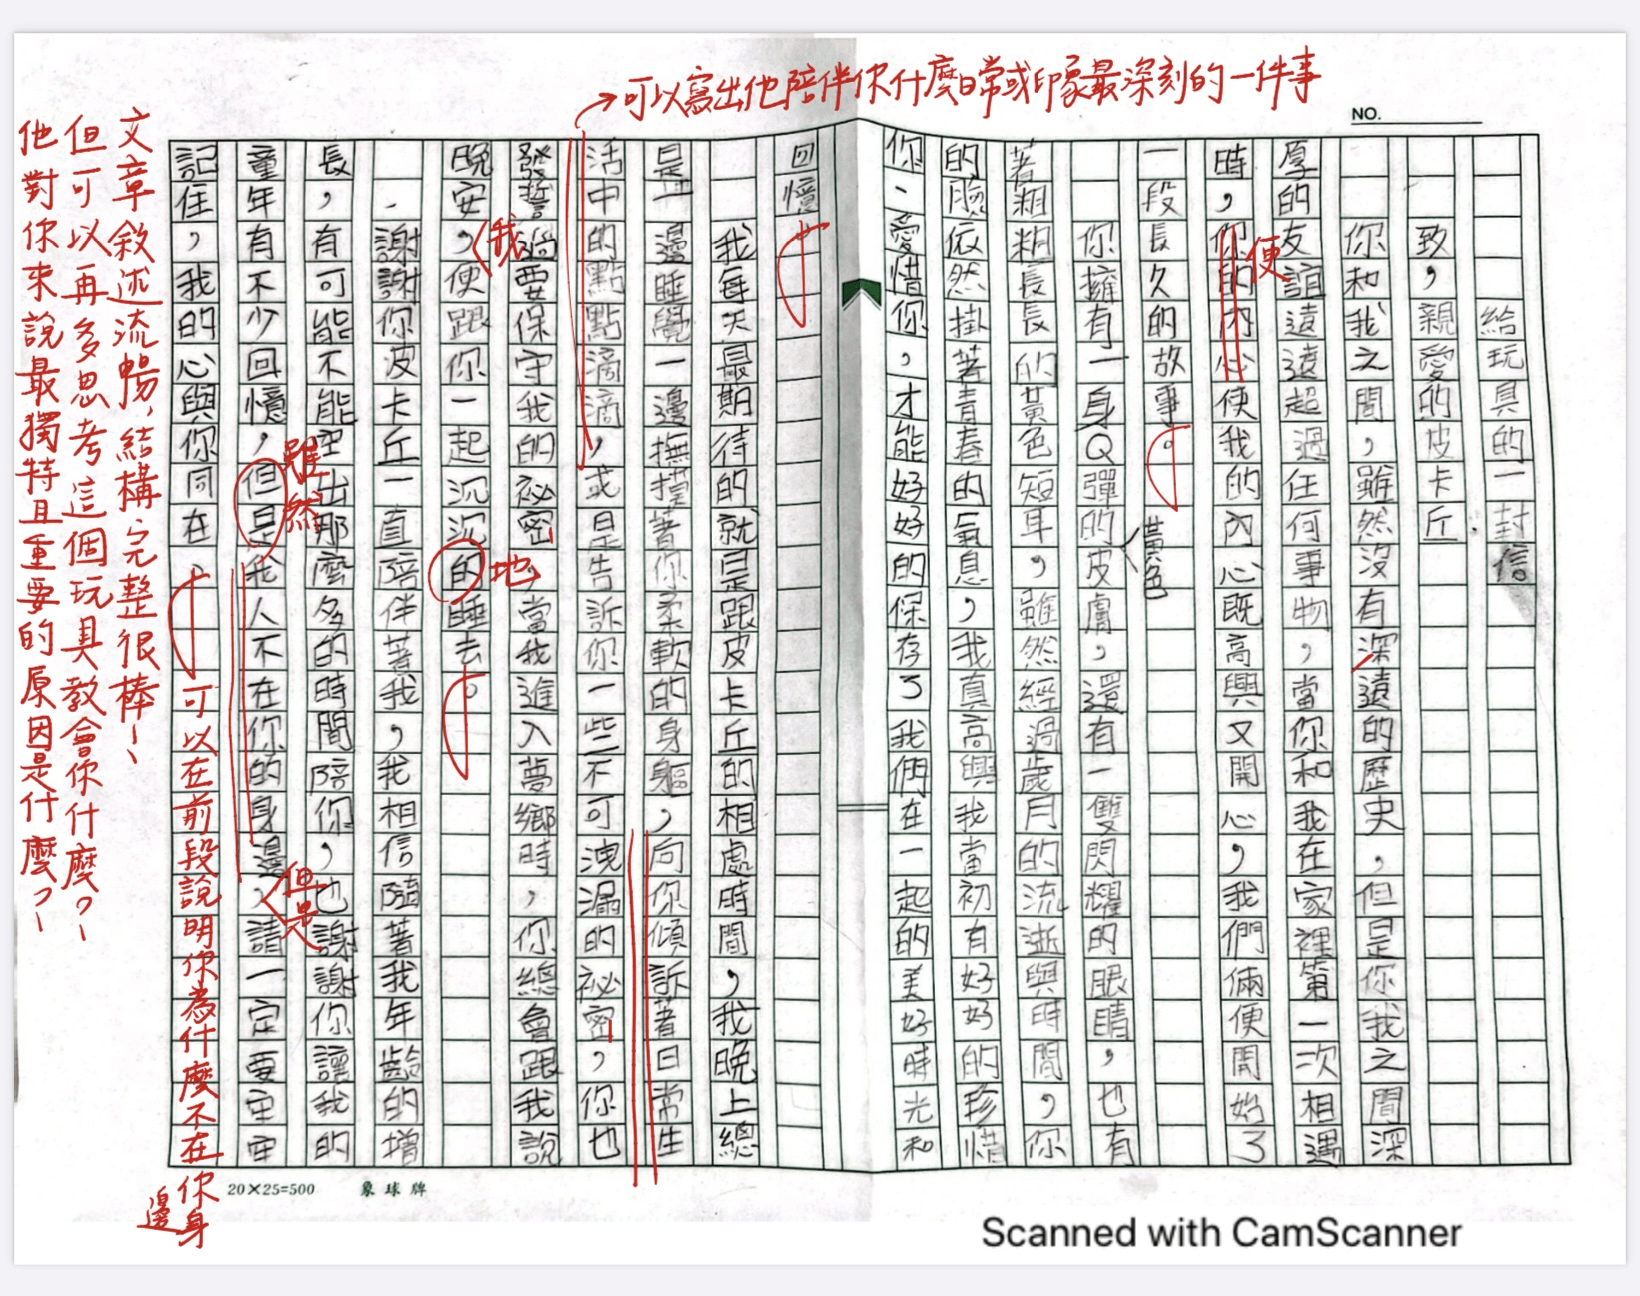 →可以寫出他陪伴你什麼日常或印象最深刻的一件事
NO.
給玩具的一封信
致,親愛的皮卡丘.
你和我之間,雖然沒有深遠的歷史,但是你我之間深
厚的友誼遠遠超過任何事物,當你和我在家裡第一次相遇
時,你的內心使我的內心既高興又開心,我們倆便開始了
便
一段長久的故事。
你擁有一身Q彈的皮膚,還有一雙閃耀的眼睛,也有
黃色
著粗粗長長的黃色短耳,雖然經過歲月的流逝與時間,你
的臉依然掛著青春的氣息,我真高興我當初有好好的珍惜
你、愛惜你,才能好好的保存了我們在一起的美好時光和
回憶。
我每天最期待的就是跟皮卡丘的相處時間,我晚上總
是一邊睡覺一邊撫摸著你柔軟的身軀,向你傾訴著日常生
活中的點點滴滴,或是告訴你一些不可洩漏的祕密,你也
發誓過要保守我的祕密,當我進入夢鄉時,你總會跟我說
晚安,便跟你一起沉沉的睡去。
我
地
謝謝你皮卡丘一直陪伴著我,我相信隨著我年齡的增
長,有可能不能空出那麼多的時間陪你,也謝謝你讓我的
童年有不少回憶,但是我人不在你的身邊,請一定要牢牢
雖然
但是
記住,我的心與你同在。
可以在前段說明你為什麼不在你身邊
文章敘述流暢,結構完整很棒!
但可以再多思考這個玩具教會你什麼?
他對你來說最獨特且重要的原因是什麼?
20×25=500 象球牌
Scanned with CamScanner